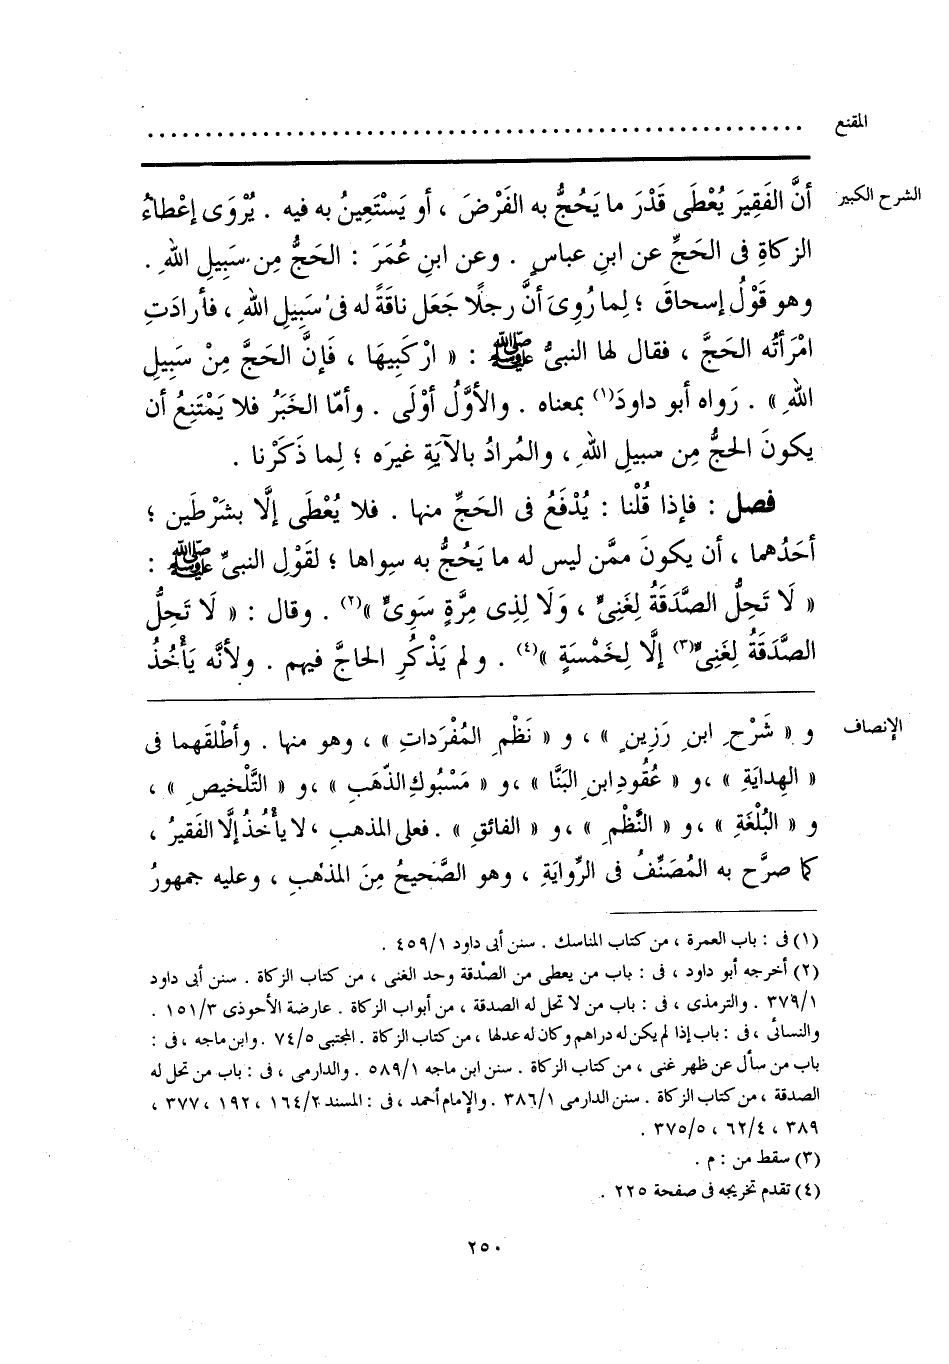 المقنع ......................................................
الشرح الكبير أنَّ الفَقِيرَ يُعْطَى قَدْرَ ما يَحُجُّ به الفَرْضَ ، أو يَسْتَعِينُ به فيه . يُرْوَى إعْطاءُ
الزكاةِ فى الحَجِّ عن ابنِ عباسٍ . وعن ابنِ عُمَرَ : الحَجُّ مِن سَبِيلِ اللهِ .
وهو قَوْلُ إسحاقَ ؛ لِما رُوِىَ أنَّ رجلًا جَعَل ناقَةً له فى سَبِيلِ اللهِ ، فأرادَتِ
امْرَأتُه الحَجَّ ، فقال لها النبىُّ ﷺ : « ارْكَبِيهَا ، فَإنَّ الحَجَّ مِنْ سَبِيلِ
اللهِ » . رَواه أبو داودَ(١) بمعناه . والأوَّلُ أوْلَى . وأمّا الخَبَرُ فلا يَمْتَنِعُ أن
يكونَ الحجُّ مِن سبيلِ اللهِ ، والمُرادُ بالآيَةِ غيرَه ؛ لِما ذَكَرْنا .
فصل : فإذا قُلْنا : يُدْفَعُ فى الحَجِّ منها . فلا يُعْطَى إلَّا بشَرْطَين ؛
أحَدُهما ، أن يكونَ ممَّن ليس له ما يَحُجُّ به سِواها ؛ لقَوْلِ النبىِّ ﷺ :
« لَا تَحِلُّ الصَّدَقَةُ لِغَنِىٍّ ، وَلَا لِذِى مِرَّةٍ سَوِىٍّ »(٢) . وقال : « لَا تَحِلُّ
الصَّدَقَةُ لِغَنِىٍّ(٣) إلَّا لِخَمْسَةٍ »(٤) . ولم يَذْكُرِ الحاجَّ فيهم . ولأنَّه يَأْخُذُ
الإنصاف و « شَرْحِ ابنِ رَزِينٍ » ، و « نَظْمِ المُفْرَداتِ » ، وهو منها . وأطْلَقَهما فى
« الهِدايَةِ » ،و « عُقُودِ ابنِ البَنَّا » ،و « مَسْبُوكِ الذّهَبِ » ،و « التَّلْخيصِ » ،
و « البُلْغَةِ » ،و « النَّظْمِ » ،و « الفائقِ » . فعلى المذهبِ ، لا يأْخُذُ إلَّا الفَقيرُ ،
كما صرَّح به المُصَنِّفُ فى الرِّوايَةِ ، وهو الصَّحيحُ مِنَ المذهبِ ، وعليه جمهورُ
(١) فى : باب العمرة ، من كتاب المناسك . سنن أبى داود ٤٥٩/١ .
(٢) أخرجه أبو داود ، فى : باب من يعطى من الصدقة وحد الغنى ، من كتاب الزكاة . سنن أبى داود
٣٧٩/١ . والترمذى ، فى : باب من لا تحل له الصدقة ، من أبواب الزكاة . عارضة الأحوذى ١٥١/٣ .
والنسائى ، فى : باب إذا لم يكن له دراهم وكان له عدلها ، من كتاب الزكاة . المجتبى ٧٤/٥ . وابن ماجه ، فى :
باب من سأل عن ظهر غنى ، من كتاب الزكاة . سنن ابن ماجه ٥٨٩/١ . والدارمى ، فى : باب من تحل له
الصدقة ، من كتاب الزكاة . سنن الدارمى ٣٨٦/١ . والإمام أحمد ، فى : المسند ١٦٤/٢ ، ١٩٢ ، ٣٧٧ ،
٣٨٩ ، ٦٢/٤ ، ٣٧٥/٥ .
(٣) سقط من : م .
(٤) تقدم تخريجه فى صفحة ٢٢٥ .
٢٥٠